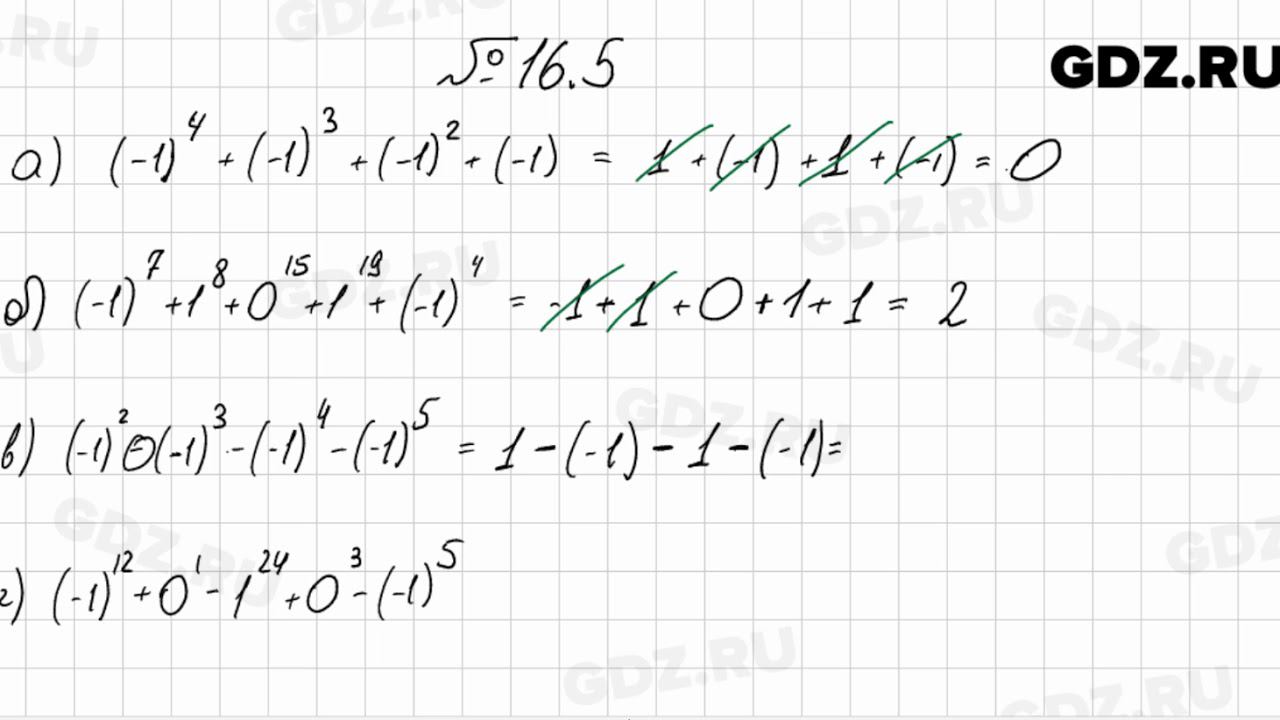 № 16.5
GDZ.RU
а) (-1)⁴ + (-1)³ + (-1)² + (-1) = 1 + (-1) + 1 + (-1) = 0
б) (-1)⁷ + 1⁸ + 0¹⁵ + 1¹⁹ + (-1)⁴ = -1 + 1 + 0 + 1 + 1 = 2
в) (-1)² - (-1)³ - (-1)⁴ - (-1)⁵ = 1 - (-1) - 1 - (-1) =
г) (-1)¹² + 0¹ - 1²⁴ + 0³ - (-1)⁵